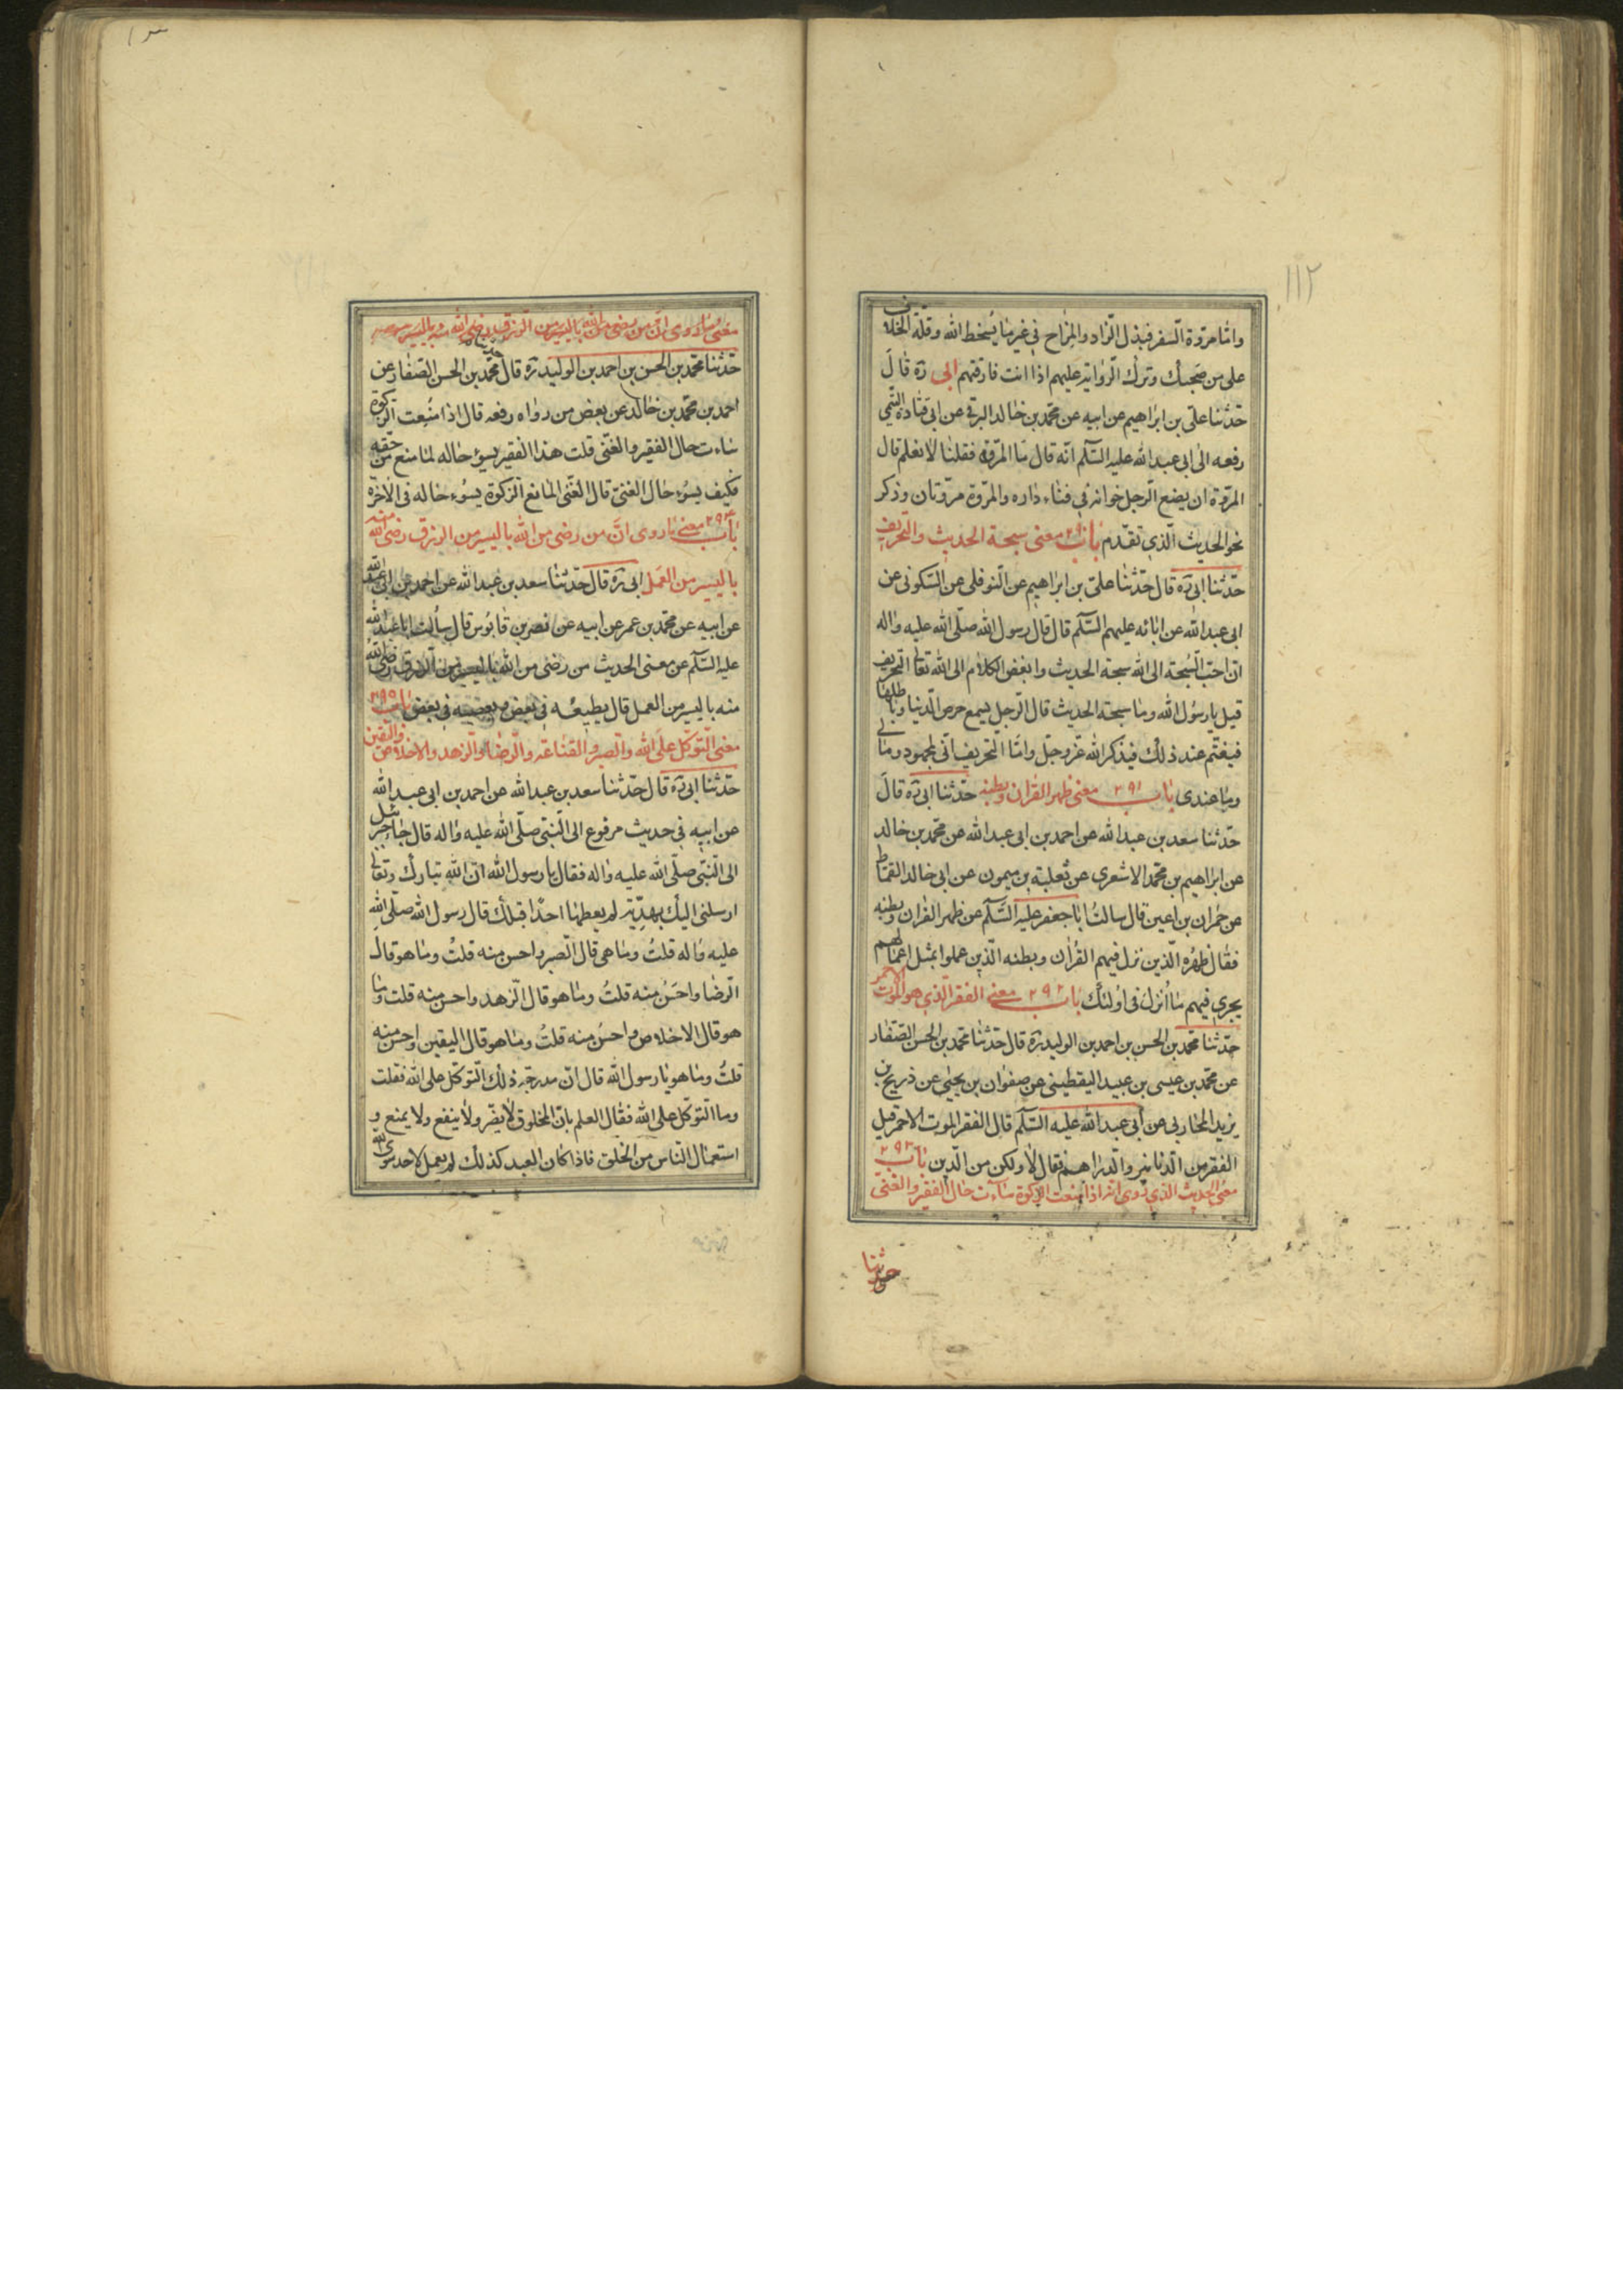 ١١٢
واما مروة السفر فبذل الزاد والمزاح في غير ما يسخط الله وقلة الخلاف
على من صحبك وترك الرواية عليهم اذا انت فارقتهم ابى ره قال
حدثنا على بن ابراهيم عن ابيه عن محمد بن خالد البرقى عن ابى قتادة القمى
رفعه الى ابى عبد الله عليه السلم انه قال ما المروة فقلنا لا نعلم قال
المروة ان يضع الرجل خوانه فى فناء داره والمروة مروتان وذكر
نحو الحديث الذى تقدم باب ٢٩٠ معنى سبحة الحديث والتحريف
حدثنا ابى ره قال حدثنا على بن ابراهيم عن النوفلى عن السكونى عن
ابى عبد الله عن ابائه عليهم السلم قال قال رسول الله صلى الله عليه واله
ان احب السبحة الى الله سبحة الحديث وابغض الكلام الى الله تعالى التحريف
قيل يا رسول الله وما سبحة الحديث قال الرجل يسمع حرص الدنيا وباطلها
فيغتم عند ذلك فيذكر الله عز وجل واما التحريف انى لمجهود ومالى
وما عندى باب ٢٩١ معنى ظهر القران وبطنه حدثنا ابى ره قال
حدثنا سعد بن عبد الله عن احمد بن ابى عبد الله عن محمد بن خالد
عن ابراهيم بن محمد الاشعرى عن ثعلبة بن ميمون عن ابى خالد القماط
عن حمران بن اعين قال سالت ابا جعفر عليه السلم عن ظهر القران وبطنه
فقال ظهره الذين نزل فيهم القران وبطنه الذين عملوا بمثل اعمالهم
يجرى فيهم ما انزل فى اولئك باب ٢٩٢ معنى الفقر الذى هو الموت الاحمر
حدثنا محمد بن الحسن بن احمد بن الوليد ره قال حدثنا محمد بن الحسن الصفار
عن محمد بن عيسى بن عبيد اليقطينى عن صفوان بن يحيى عن ذريح بن
يزيد المحاربى عن أبى عبد الله عليه السلم قال الفقر الموت الاحمر قيل
الفقر من الدنانير والدراهم فقال لا ولكن من الدين باب ٢٩٣
معنى الحديث الذى روى انه اذا منعت الزكوة ساءت حال الفقير والغنى
حدثنا
معنى ما روى ان من رضى من الله باليسير من الرزق رضى الله منه باليسير من
حدثنا محمد بن الحسن بن احمد بن الوليد ره قال حدثنا محمد بن الحسن الصفار عن
احمد بن محمد بن خالد عن بعض من رواه رفعه قال اذا منعت الزكوة
ساءت حال الفقير والغنى قلت هذا الفقير يسوء حاله لما منع من حقه
فكيف يسوء حال الغنى قال الغنى المانع الزكوة يسوء حاله فى الاخرة
باب ٢٩٤ معنى ما روى ان من رضى من الله باليسير من الرزق رضى الله منه
باليسير من العمل ابى ره قال حدثنا سعد بن عبد الله عن احمد بن ابى عبد الله
عن ابيه عن محمد بن عمر عن ابيه عن نصر بن قابوس قال سألت ابا عبد الله
عليه السلم عن معنى الحديث من رضى من الله باليسير من الرزق رضى الله
منه باليسير من العمل قال يطيعه فى بعض ويعصيه فى بعض باب ٢٩٥
معنى التوكل على الله والصبر والقناعة والرضا والزهد والاخلاص واليقين
حدثنا ابى ره قال حدثنا سعد بن عبد الله عن احمد بن ابى عبد الله
عن ابيه فى حديث مرفوع الى النبى صلى الله عليه واله قال جاء جبرئيل
الى النبى صلى الله عليه واله فقال يا رسول الله ان الله تبارك وتعالى
ارسلنى اليك بهدية لم يعطها احدا قبلك قال رسول الله صلى الله
عليه واله قلت وما هى قال الصبر واحسن منه قلت وما هو قال
الرضا واحسن منه قلت وما هو قال الزهد واحسن منه قلت وما
هو قال الاخلاص واحسن منه قلت وما هو قال اليقين واحسن منه
قلت وما هو يا رسول الله قال ان مدرجة ذلك التوكل على الله فقلت
وما التوكل على الله فقال العلم بان المخلوق لا يضر ولا ينفع ولا يمنع و
استعمال الناس من الخلق فاذا كان العبد كذلك لم يعمل لاحد سوى الله